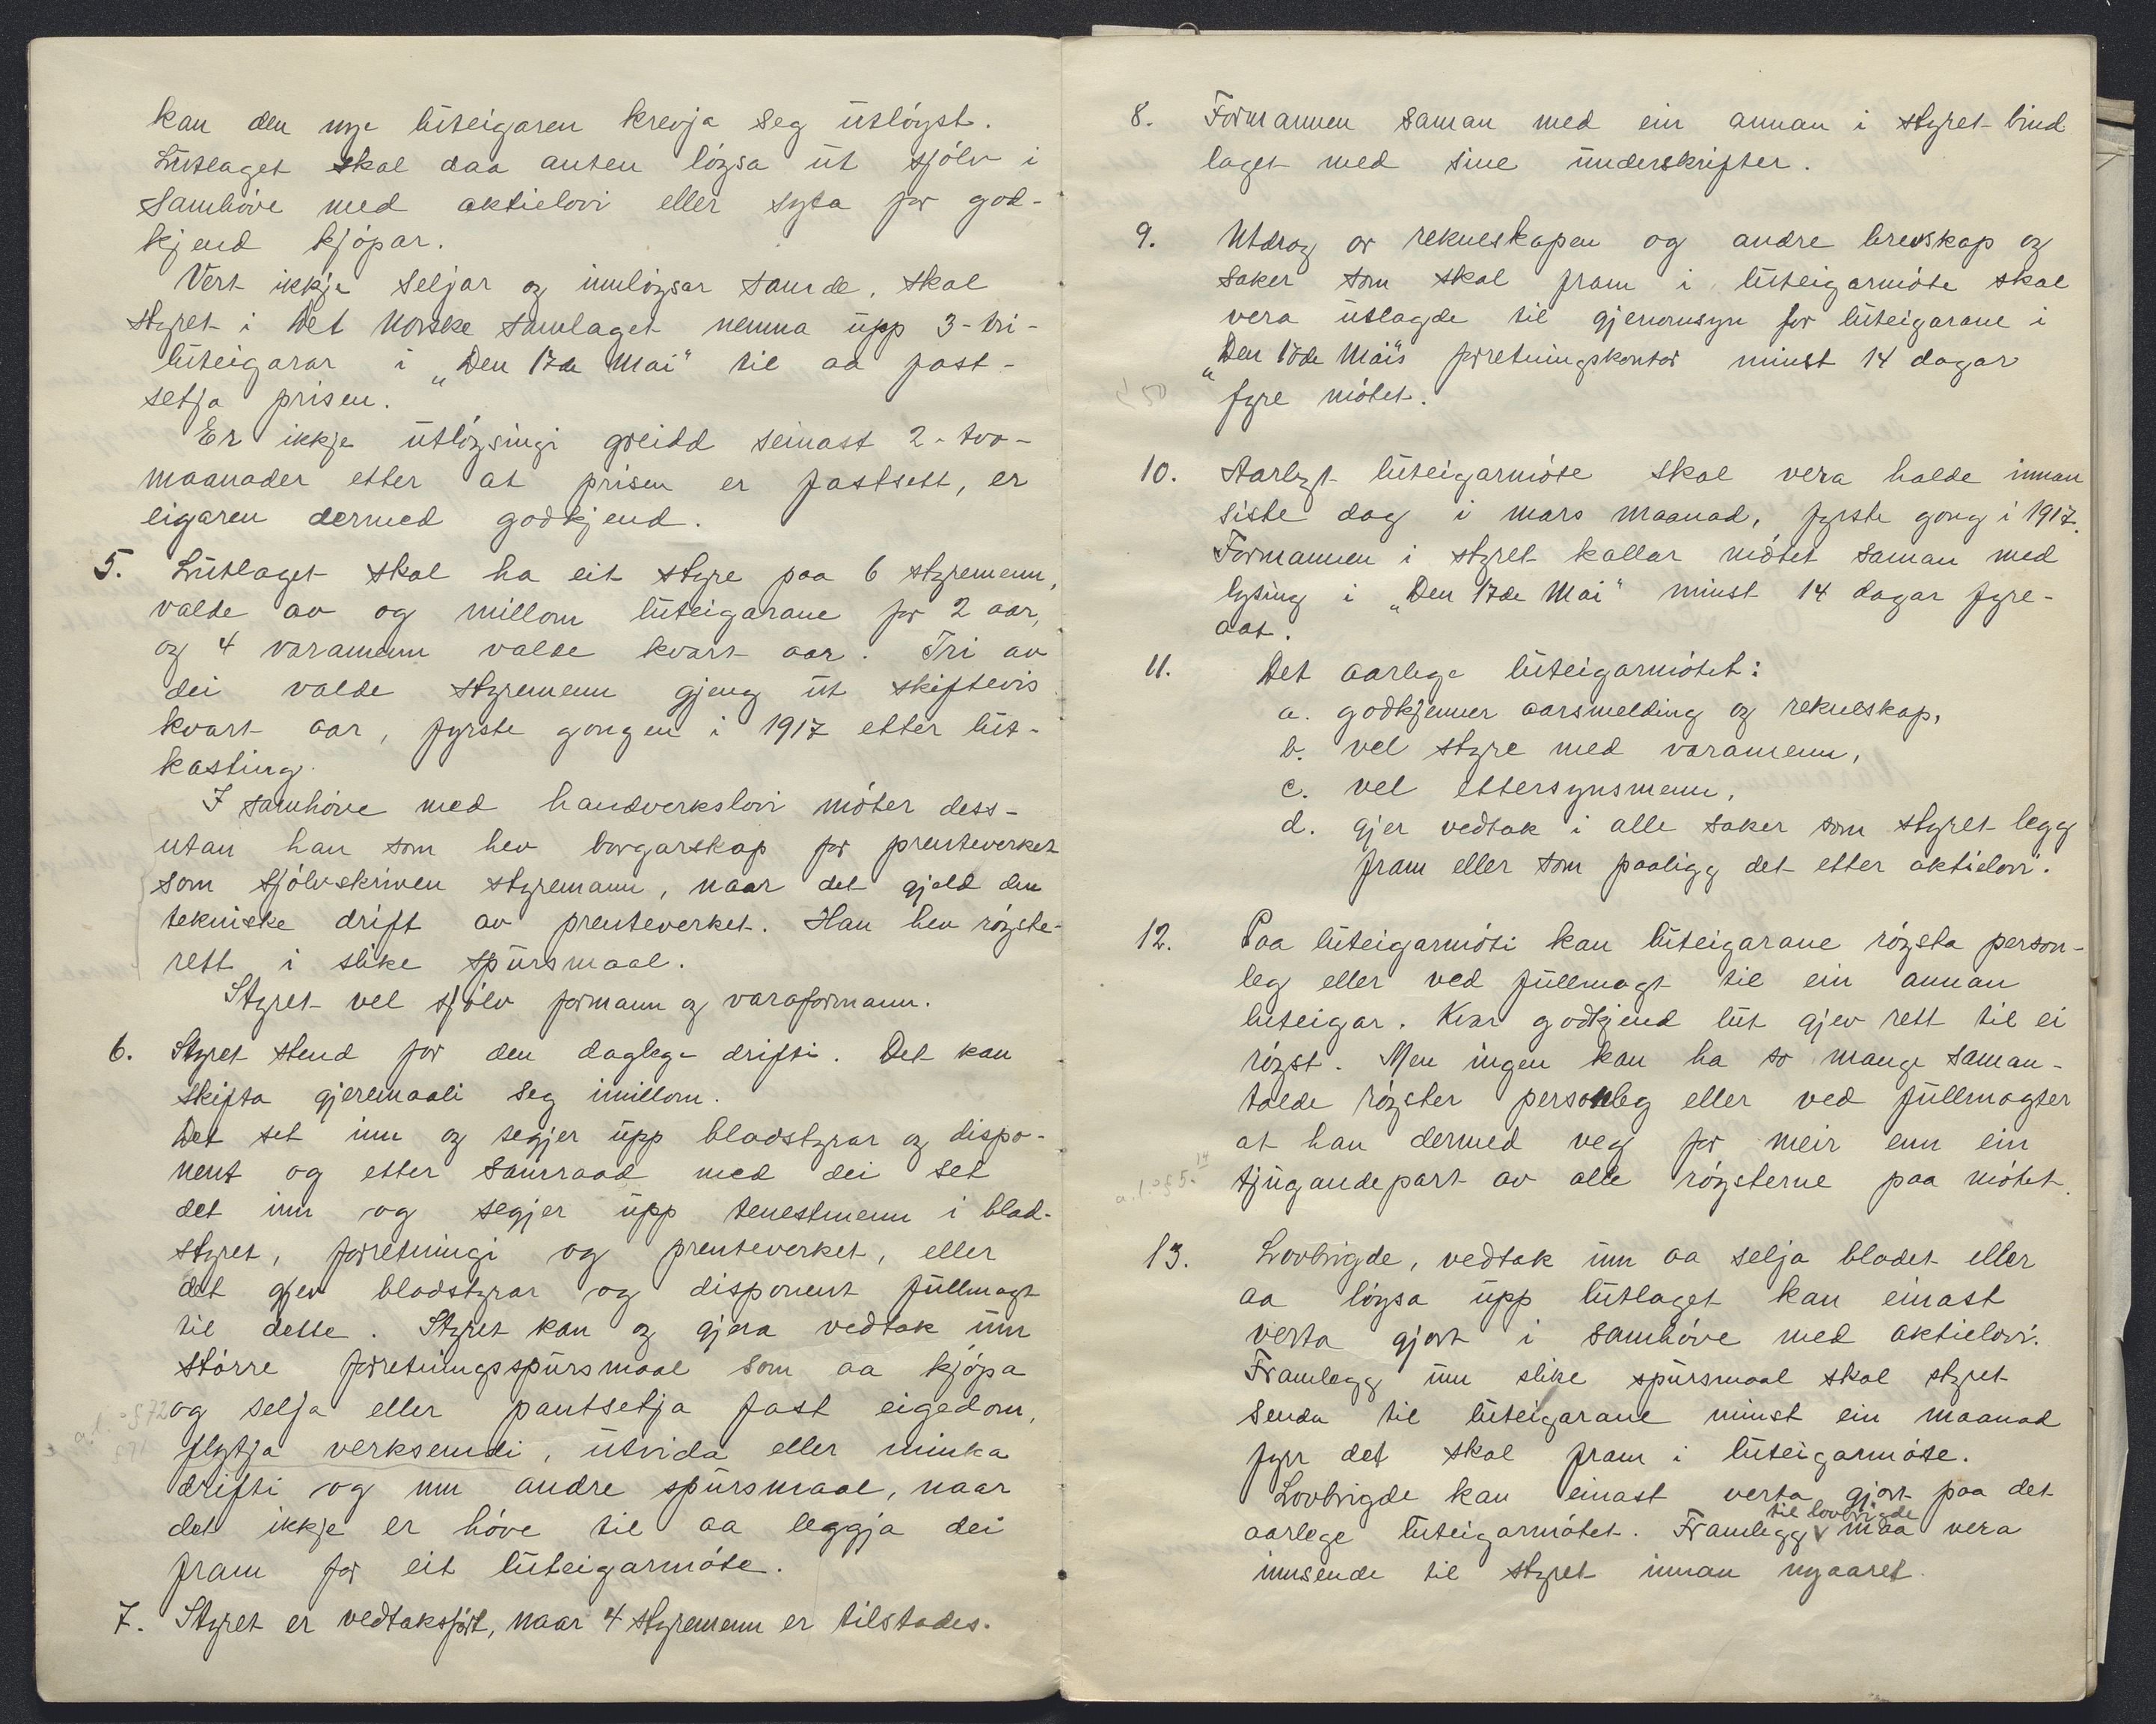 kan den nye luteigaren krevja seg utløyst.
Lutlaget skal daa anten løysa ut sjølv i
samhøve med aktielovi eller syta for god-
kjend kjøpar.
Vert ikkje seljar og innløysar samde, skal
styret i Det Norske Samlaget nemna upp 3-tri-
luteigarar i „Den 17de Mai" til aa fast-
setja prisen.
Er ikkje utløysingi greidd seinast 2-tvo-
maanader etter at prisen er fastsett, er
eigaren dermed godkjend.
5. Lutlaget skal ha eit styre paa 6 styremenn,
valde av og millom luteigarane for 2 aar,
og 4 varamenn valde kvart aar. Tri av
dei valde styremenn gjeng ut skiftevis
kvart aar, fyrste gongen i 1917 etter lut-
kasting.
I samhøve med handverkslovi møter dess-
utan han som hev borgarskap for prenteverket
som sjølvskriven styremann, naar det gjeld den
tekniske drift av prenteverket. Han hev røyste-
rett i slike spursmaal.
Styret vel sjølv formann og varaformann.
6. Styret stend for den daglege drifti. Det kan
skifta gjeremaali seg imillom.
Det set inn og segjer upp bladstyrar og dispo-
nent og etter samraad med dei set
det inn og segjer upp tenestmenn i blad-
styret, forretningi og prenteverket, eller
det gjev bladstyrar og disponent fullmagt
til dette. Styret kan og gjera vedtak um
større forretningsspursmaal som aa kjøpa
a.l. § 72 og selja eller pantsetja fast eigedom,
§ 71 flytja verksemdi, utvida eller minka
drifti og um andre spursmaal, naar
det ikkje er høve til aa leggja dei
fram for eit luteigarmøte.
7. Styret er vedtaksført, naar 4 styremenn er tilstades.
8. Formannen saman med ein annan i styret bind
laget med sine underskrifter.
9. Utdrag or rekneskapen og andre brevskap og
saker som skal fram i luteigarmøte skal
vera utlagde til gjenomsyn for luteigarane i
„Den 17de Mai"s forretningskontor minst 14 dagar
§ 50 fyre møtet.
10. Aarlegt luteigarmøte skal vera halde innan
siste dag i mars maanad, fyrste gong i 1917.
Formannen i styret kallar møtet saman med
lysing i „Den 17de Mai" minst 14 dagar fyre-
aat.
11. Det aarlege luteigarmøtet:
a. godkjenner aarsmelding og rekneskap,
b. vel styre med varamenn,
c. vel ettersynsmenn,
d. gjer vedtak i alle saker som styret legg
fram eller som paaligg det etter aktielovi.
12. Paa luteigarmøti kan luteigarane røysta person-
leg eller ved fullmagt til ein annan
luteigar. Kvar godkjend lut gjev rett til ei
røyst. Men ingen kan ha so mange saman-
talde røyster personleg eller ved fullmagter
at han dermed veg for meir enn ein
a.l. § 5. 14 tjugandepart av alle røysterne paa møtet.
13. Lovbrigde, vedtak um aa selja bladet eller
aa løysa upp lutlaget kan einast
verta gjort i samhøve med aktielovi.
Framlegg um slike spursmaal skal styret
senda til luteigarane minst ein maanad
fyrr det skal fram i luteigarmøte.
Lovbrigde kan einast verta gjort paa det
til lovbrigde
aarlege luteigarmøtet. Framlegg maa vera
innsende til styret innan nyaaret.